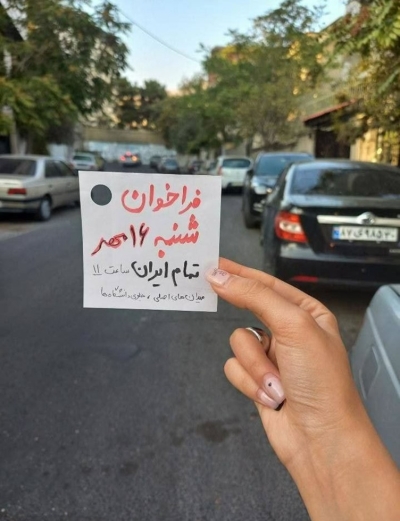 فراخوان
شنبه ۱۶ مهر
تمام ایران ساعت ۱۱
میدان‌های اصلی و جلوی دانشگاه‌ها